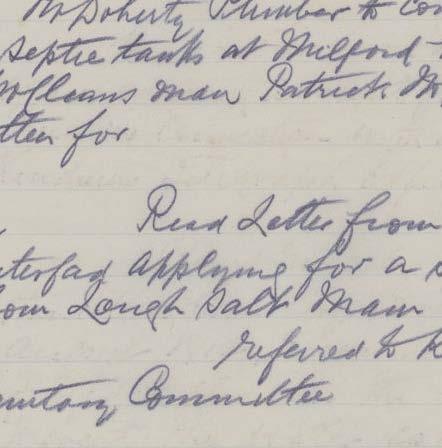 McDoherty Plumber to Con
septic tanks at Milford
McCleans man Patrick Mc
tten for
Read Letter from
terfad applying for a
om Lough Salt Main
referred to K
anitary Committee